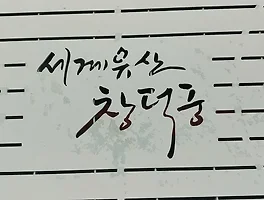 세계유산
창덕궁